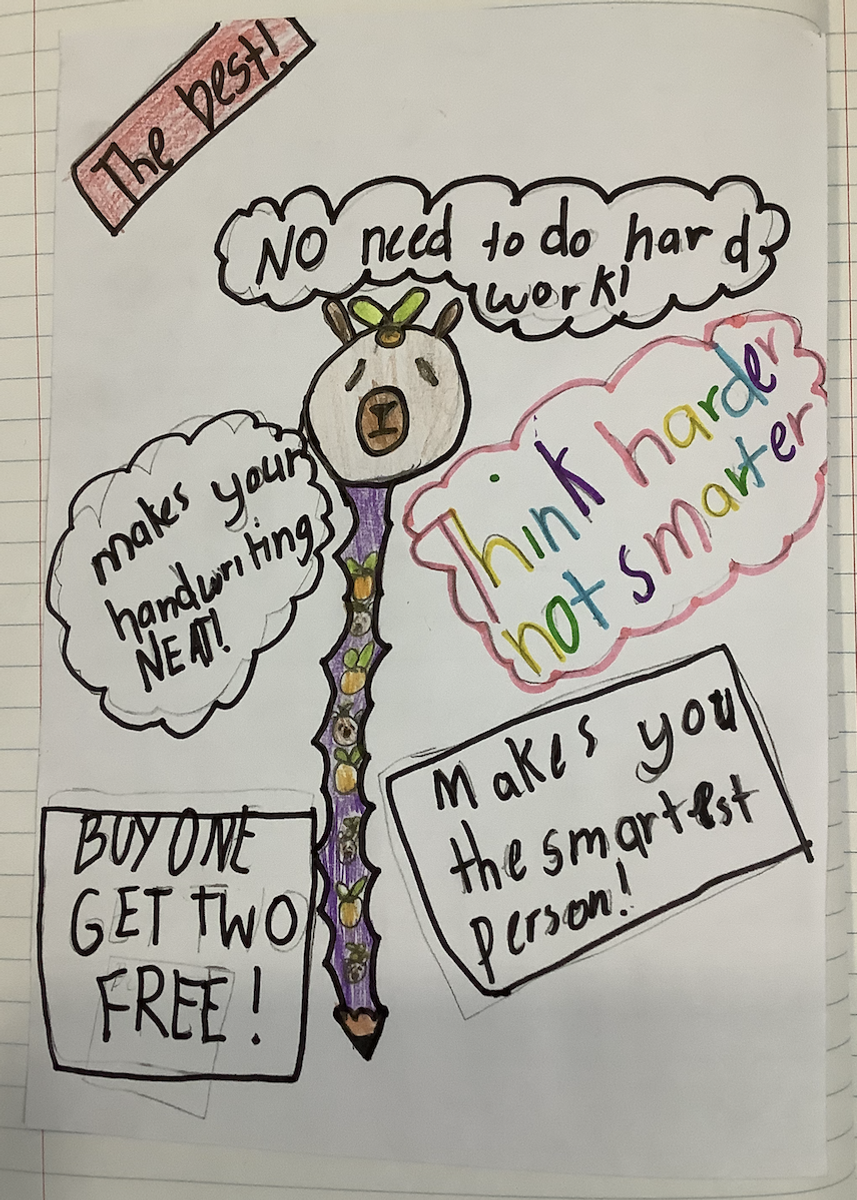 The best!
NO need to do hard
work!
makes your
handwriting
NEAT!
Think harder
not smarter
Makes you
the smartest
person!
BUY ONE
GET TWO
FREE!